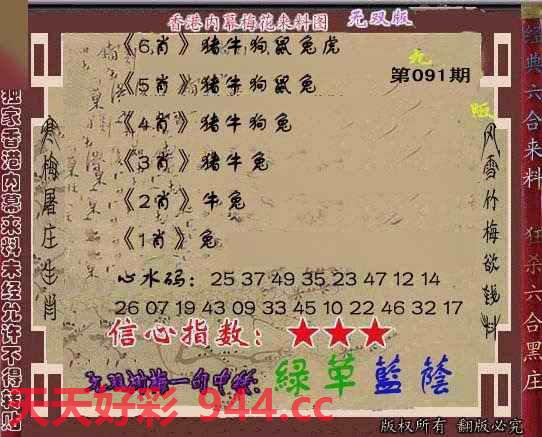 香港内幕梅花来料图 无双版
《6肖》猪牛狗鼠兔虎
《5肖》猪牛狗鼠兔
第091期
《4肖》猪牛狗兔
《3肖》猪牛兔
《2肖》牛兔
《1肖》兔
心水码：25 37 49 35 23 47 12 14
26 07 19 43 09 33 45 10 22 46 32 17
信心指数：★★★
綠草藍蔭
天天好彩 944.cc
版权所有 翻版必究
独家香港内幕来料未经允许不得转贴
寒梅屠庄生肖
风雪竹梅欲钱料
经典六合来料 狂杀六合黑庄